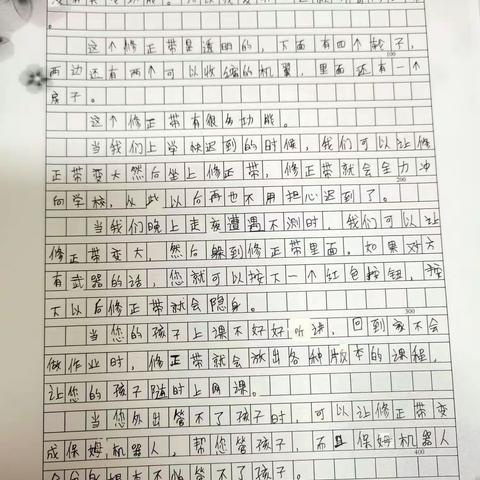 这个修正带是透明的，下面有四个轮子，
100
两边还有两个可以收缩的机翼，里面还有一个
房子。
这个修正带有很多功能。
当我们上学快迟到的时候，我们可以让修
正带变大然后坐上修正带，修正带就会全力冲
200
向学校，从此以后再也不用担心迟到了。
当我们晚上走夜遭遇不测时，我们可以让
修正带变大，然后躲到修正带里面。如果对方
有武器的话，您就可以按下一个红色按钮，按
下以后修正带就会隐身。
300
当您的孩子上课不好好听讲，回到家不会
做作业时，修正带就会放出各种版本的课程，
让您的孩子随时上网课。
当您外出管不了孩子时，可以让修正带变
成保姆机器人，帮您管孩子，而且保姆机器人
400
管不了孩子。